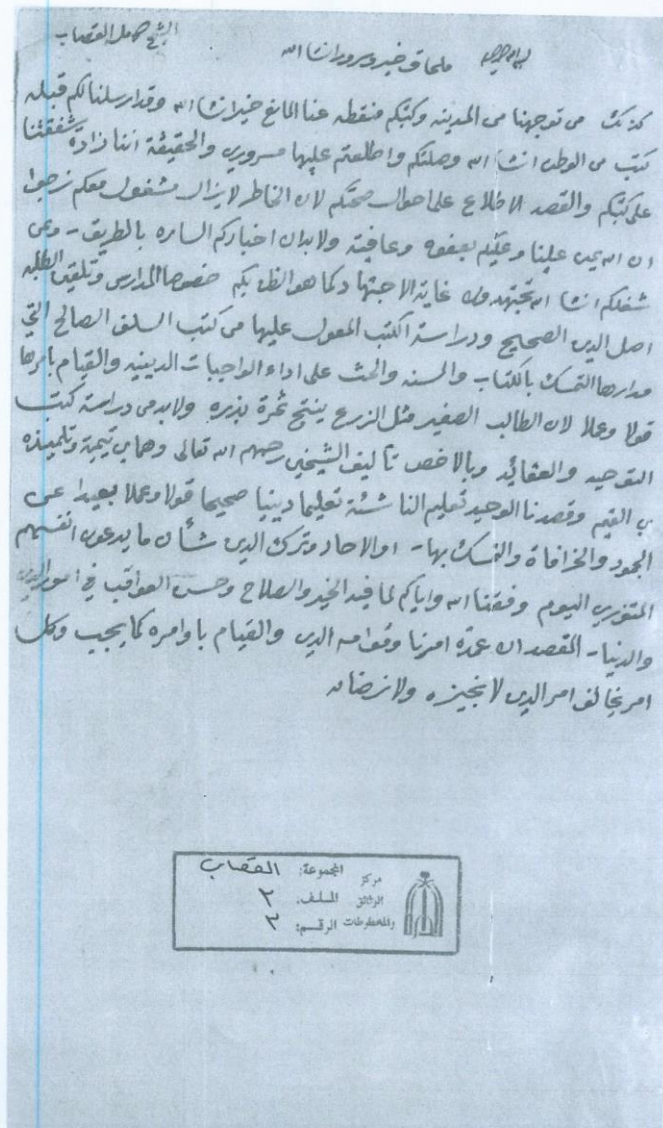 الشيخ كامل القصاب
بسم الله الرحمن الرحيم ملحاق خير وسرور انشا الله
كذلك من توجهنا من المدينه وكتبكم منقطه عنا المانع خير انشا الله وقد ارسلنا لكم قبله
كتب من الوطن انشا الله وصلتكم واطلعتم عليها مسرورين والحقيقة اننا زادة شفقتنا
على كتبكم والقصد الاطلاع على احوال صحتكم لان الخاطر لا يزال مشغول معكم نرجوا
ان الله يمن علينا وعليكم بعفوه وعافيته ولا بد ان اخباركم الساره بالطريق - وعن
شغلكم انشا الله تجتهدون غاية الاجتهاد كما هو الظن بكم خصوصا المدارس وتلقين الطلبه
اصل الدين الصحيح ودراسة الكتب المعول عليها من كتب السلف الصالح التي
مدارها التمسك بالكتاب والسنه والحث على اداء الواجبات الدينيه والقيام بامرها
قولا وعملا لان الطالب الصغير مثل الزرع ينتج ثمرة بذره ولا بد من دراسة كتب
التوحيد والعقائد وبالاخص تأليف الشيخين رحمهم الله تعالى وهما بن تيمية وتلميذه
بن القيم وقصدنا الوحيد تعليم الناشئة تعليما دينيا صحيحا قولا وعملا بعيدا عن
الجمود والخرافاة والتمسك بها - او الالحاد وترك الدين شأن ما يدعون انفسهم
المتنورين اليوم وفقنا الله واياكم لما فيه الخير والصلاح وحسن العواقب في امور الدين
والدنيا - المقصد ان عمدة امرنا وقوامه الدين والقيام باوامره كما يجب وكل
امر يخالف امر الدين لا نجيزه ولا نرضاه
مركز الوثائق والمخطوطات
المجموعة: القصاب
الملف: ٢
الرقم: ٢